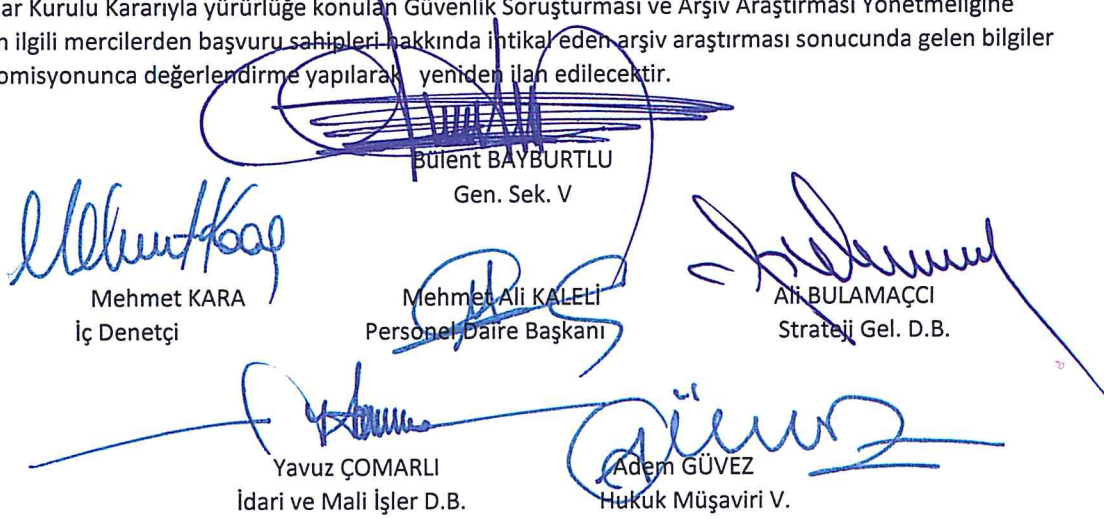 ar Kurulu Kararıyla yürürlüğe konulan Güvenlik Soruşturması ve Arşiv Araştırması Yönetmeliğine
n ilgili mercilerden başvuru sahipleri hakkında intikal eden arşiv araştırması sonucunda gelen bilgiler
omisyonunca değerlendirme yapılarak yeniden ilan edilecektir.
Bülent BAYBURTLU
Gen. Sek. V
Mehmet Kara
Mehmet KARA
İç Denetçi
Mehmet Ali KALELİ
Personel Daire Başkanı
Ali BULAMAÇCI
Strateji Gel. D.B.
Yavuz ÇOMARLI
İdari ve Mali İşler D.B.
Adem GÜVEZ
Hukuk Müşaviri V.